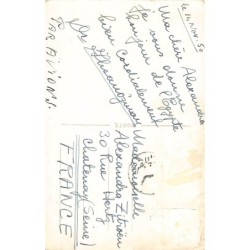 Le 14 Nov. 50
Ma chère Alexandra
Je vous donne
le bonjour de l'Egypte
bien cordialement
PAR AVION
Mademoiselle
Alexandra Zitröen
30 Rue Hertz
Chatenay (Seine)
FRANCE